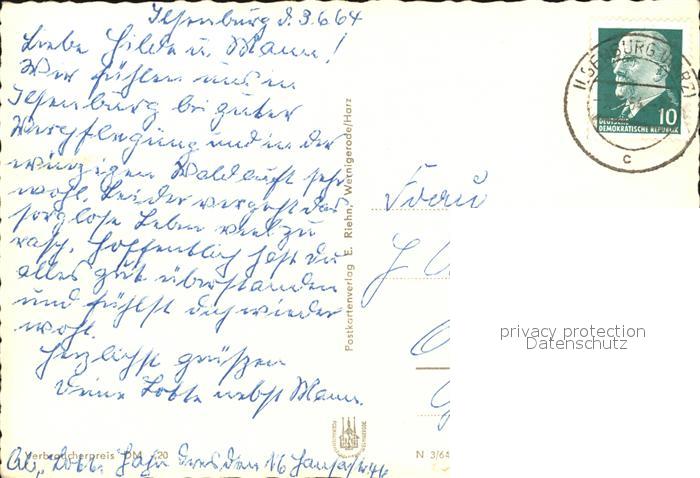 Ilsenburg d. 3.6.64
Liebe Hilde u. Mann!
Wir fühlen uns in
Ilsenburg bei guter
Verpflegung und in der
würzigen Waldluft sehr
wohl. Leider vergeht das
sorglose Leben viel zu
rasch. Hoffentlich hast du
alles gut überstanden
und fühlst dich wieder
wohl.
Herzlichst grüßen
Deine Lotte nebst Mann.
Verbraucherpreis DM -,20
Abs. Lotte Hahn Dresden N6
Postkartenverlag E. Riehn, Wernigerode/Harz
N 3/64
Frau
ILSENBURG (HARZ)
c
10
DEUTSCHE
DEMOKRATISCHE REPUBLIK
privacy protection
Datenschutz